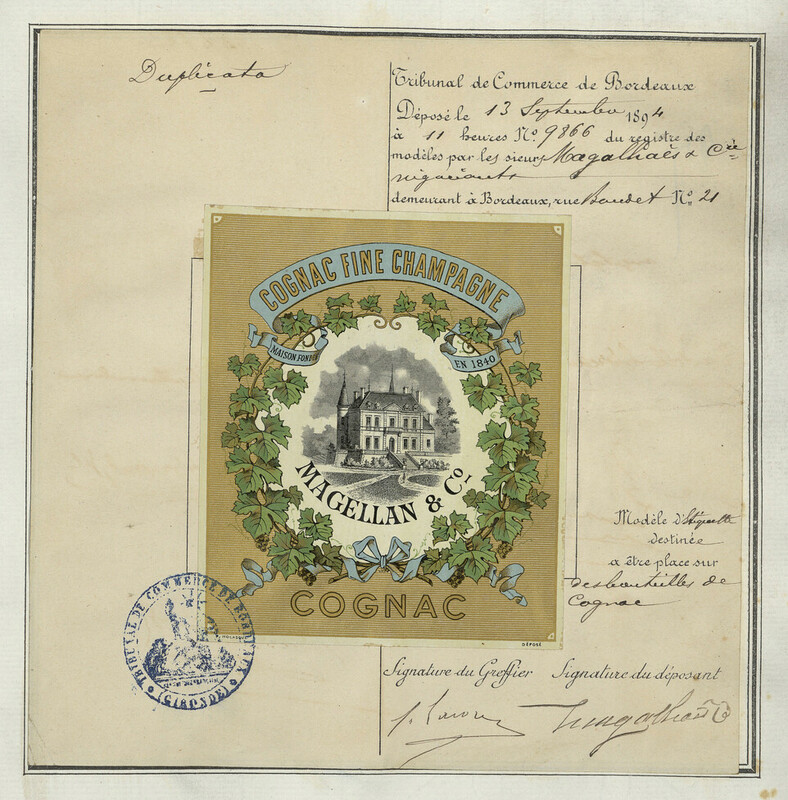 Duplicata
Tribunal de Commerce de Bordeaux
Déposé le 13 Septembre 1894
à 11 heures No. 9866 du registre des
modèles par les sieurs Magalhaès & Cie
négociants
demeurant à Bordeaux, rue Boudet No. 21
COGNAC FINE CHAMPAGNE
MAISON FONDÉE
EN 1840
MAGELLAN & Co.
COGNAC
DÉPOSÉ
Modèle d'étiquette
destinée
a être place sur
des bouteilles de
Cognac
TRIBUNAL DE COMMERCE DE BORDEAUX
(GIRONDE)
Signature du Greffier Signature du déposant